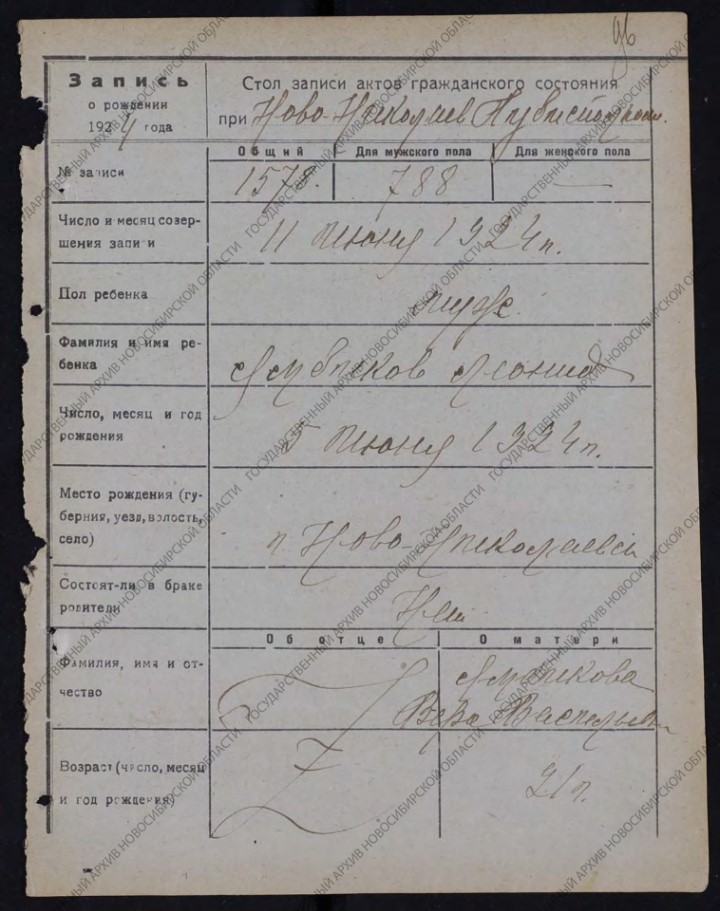 96
Запись
о рождении
1924 года
Стол записи актов гражданского состояния
при Ново-Николаев
Общий
Для мужского пола
Для женского пола
№ записи
1578.
788
—
Число и месяц совер-
шения записи
11 июня 1924 г.
Пол ребенка
муж.
Фамилия и имя ре-
бенка
Леонид
Число, месяц и год
рождения
5 июня 1924 г.
Место рождения (гу-
берния, уезд, волость,
село)
г. Ново-Николаевск
Состоят-ли в браке
родители
Нет
Об отце
О матери
Фамилия, имя и от-
чество
Вера Васильевн
Возраст (число, месяц
и год рождения)
21 г.
ГОСУДАРСТВЕННЫЙ АРХИВ НОВОСИБИРСКОЙ ОБЛАСТИ